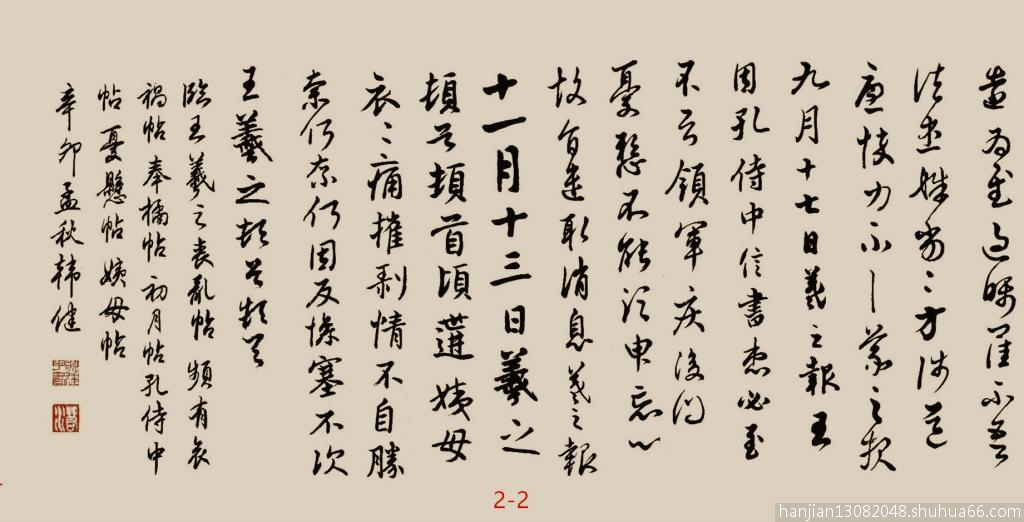 為至過不吾
殊劣方涉道
力不羲之報
九月十七日羲之報王
因孔侍中信書想必至
不知領軍疾後問
憂懸不能須申忘心
故旨遣取消息羲之報
十一月十三日羲之
頓首頓首頃遘姨母
哀〻痛摧剝情不自勝
奈何奈何因反慘塞不次
王羲之頓首頓首
臨王羲之喪亂帖頻有哀
禍帖奉橘帖初月帖孔侍中
帖憂懸帖姨母帖
辛卯孟秋韓健
2-2
hanjian13082048.shuhua66.com